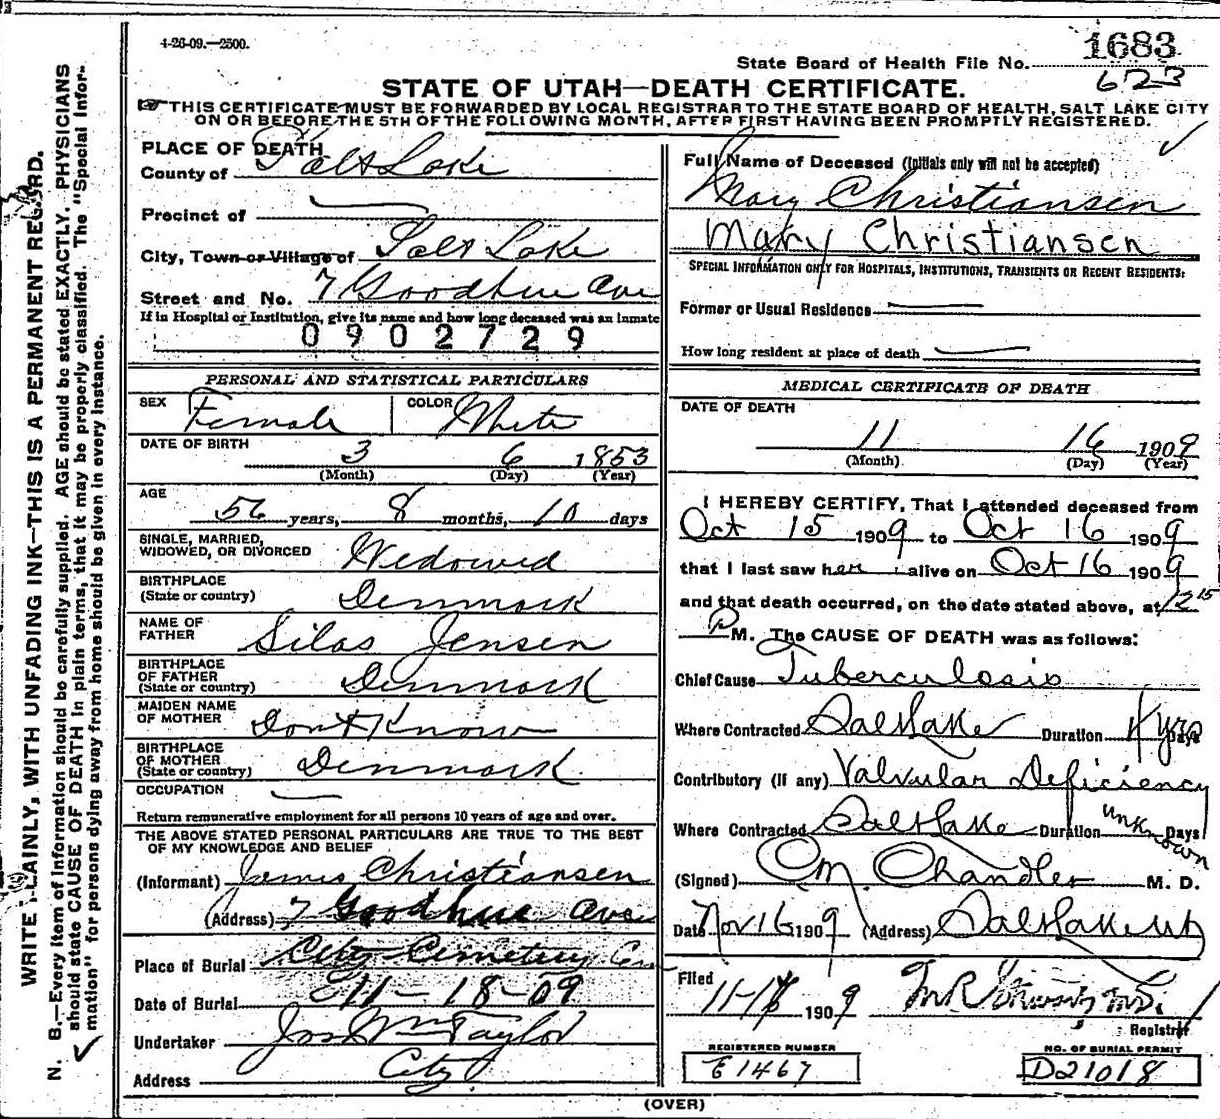 4-26-09.—2500.
1683
State Board of Health File No.
623
STATE OF UTAH—DEATH CERTIFICATE.
THIS CERTIFICATE MUST BE FORWARDED BY LOCAL REGISTRAR TO THE STATE BOARD OF HEALTH, SALT LAKE CITY
ON OR BEFORE THE 5TH OF THE FOLLOWING MONTH, AFTER FIRST HAVING BEEN PROMPTLY REGISTERED.
WRITE PLAINLY, WITH UNFADING INK—THIS IS A PERMANENT RECORD.
N. B.—Every item of information should be carefully supplied. AGE should be stated EXACTLY. PHYSICIANS
should state CAUSE OF DEATH in plain terms, that it may be properly classified. The "Special Infor-
mation" for persons dying away from home should be given in every instance.
PLACE OF DEATH
County of Salt Lake
Precinct of
City, Town or Village of Salt Lake
Street and No. 7 Goodhue Ave
If in Hospital or Institution, give its name and how long deceased was an inmate
0902729
PERSONAL AND STATISTICAL PARTICULARS
SEX Female COLOR White
DATE OF BIRTH
3 6 1853
(Month) (Day) (Year)
AGE
56 years, 8 months, 10 days
SINGLE, MARRIED,
WIDOWED, OR DIVORCED Widowed
BIRTHPLACE
(State or country) Denmark
NAME OF
FATHER Silas Jensen
BIRTHPLACE
OF FATHER
(State or country) Denmark
MAIDEN NAME
OF MOTHER Dont Know
BIRTHPLACE
OF MOTHER
(State or country) Denmark
OCCUPATION
Return remunerative employment for all persons 10 years of age and over.
THE ABOVE STATED PERSONAL PARTICULARS ARE TRUE TO THE BEST
OF MY KNOWLEDGE AND BELIEF
(Informant) James Christiansen
(Address) 7 Goodhue Ave
Place of Burial City Cemetery
Date of Burial 11-18-09
Undertaker Jos Wm Taylor
Address City
Full Name of Deceased (Initials only will not be accepted)
Mary Christiansen
Mary Christiansen
SPECIAL INFORMATION ONLY FOR HOSPITALS, INSTITUTIONS, TRANSIENTS OR RECENT RESIDENTS:
Former or Usual Residence
How long resident at place of death
MEDICAL CERTIFICATE OF DEATH
DATE OF DEATH
11 16 1909
(Month) (Day) (Year)
I HEREBY CERTIFY, That I attended deceased from
Oct 15 1909 to Oct 16 1909
that I last saw her alive on Oct 16 1909
and that death occurred, on the date stated above, at 12 15
P M. The CAUSE OF DEATH was as follows:
Chief Cause Tuberculosis
Where Contracted Salt Lake Duration 4 yrs Days
Contributory (if any) Valvular Deficiency
Where Contracted Salt Lake Duration unknown Days
(Signed) C M. Chandler M. D.
Date Nov 16 1909 (Address) Salt Lake Ut
Filed
11-18 1909
Registrar
REGISTERED NUMBER
E1467
NO. OF BURIAL PERMIT
D21018
(OVER)